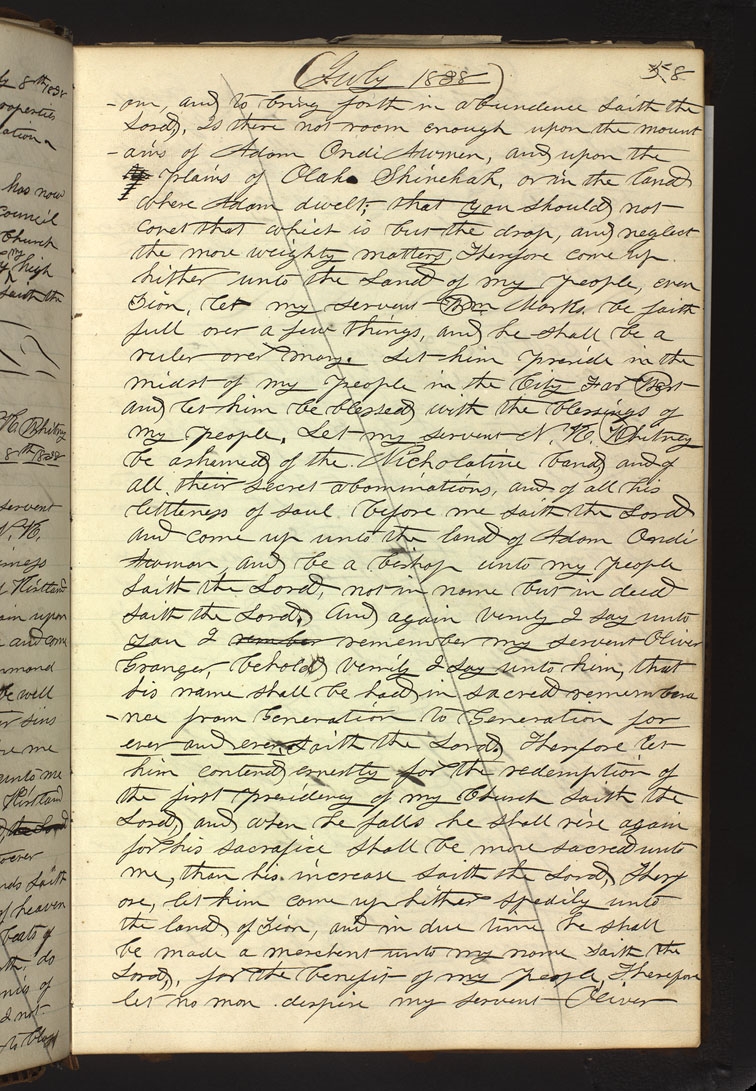 July 1838
58
-om, and to bring forth in abundence saith the
Lord, Is there not room enough upon the mount
-ains of Adam Ondi Awmen, and upon the
plains of Olah Shinehah, or in the land
where Adam dwelt; that you should not
covet that which is but the drop, and neglect
the more weighty matters, Therefore come up
hither unto the Land of my people, even
Zion, let my servant Wm Marks be faith
full over a few things, and he shall be a
ruler over many. Let him preside in the
midst of my people in the City Far West
and let him be blessed with the blessings of
my people. Let my servant N. K. Whitney
be ashamed of the Nicholatine band, and of
all their secret abominations, and of all his
littleness of soul before me saith the Lord
and come up unto the land of Adam Ondi
Awman, and be a bishop unto my people
saith the Lord, not in name but in deed
saith the Lord, And again verily I say unto
you I rember remember my servant Oliver
Granger, behold, verily I say unto him, that
his name shall be had in sacred remembera
-nce from Generation to Generation for
ever and ever, saith the Lord, Therefore let
him contend ernestly for the redemption of
the first presidency of my Church saith the
Lord, and when he falls he shall rise again
for his sacrafice shall be more sacred unto
me, than his increase saith the Lord, Theref
ore, let him come up hither spedily unto
the land of Zion, and in due time he shall
be made a merchent unto my name saith the
Lord, for the benefit of my people, Therefore
let no man despise my servant Oliver
8th 1838
roperties
ation
has now
Council
Church
my
high
saith the
N. K. Whitney
8th 1838
servent
N. K.
Kirtland
ain upon
and come
mmand
be well
sins
re me
unto me
Kirtland
the Lord
ver
saith
of heaven
do
of
not